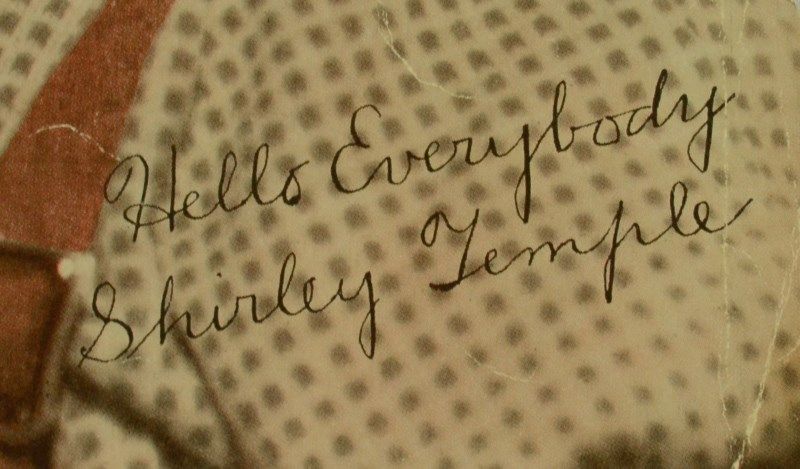 Hello Everybody
Shirley Temple